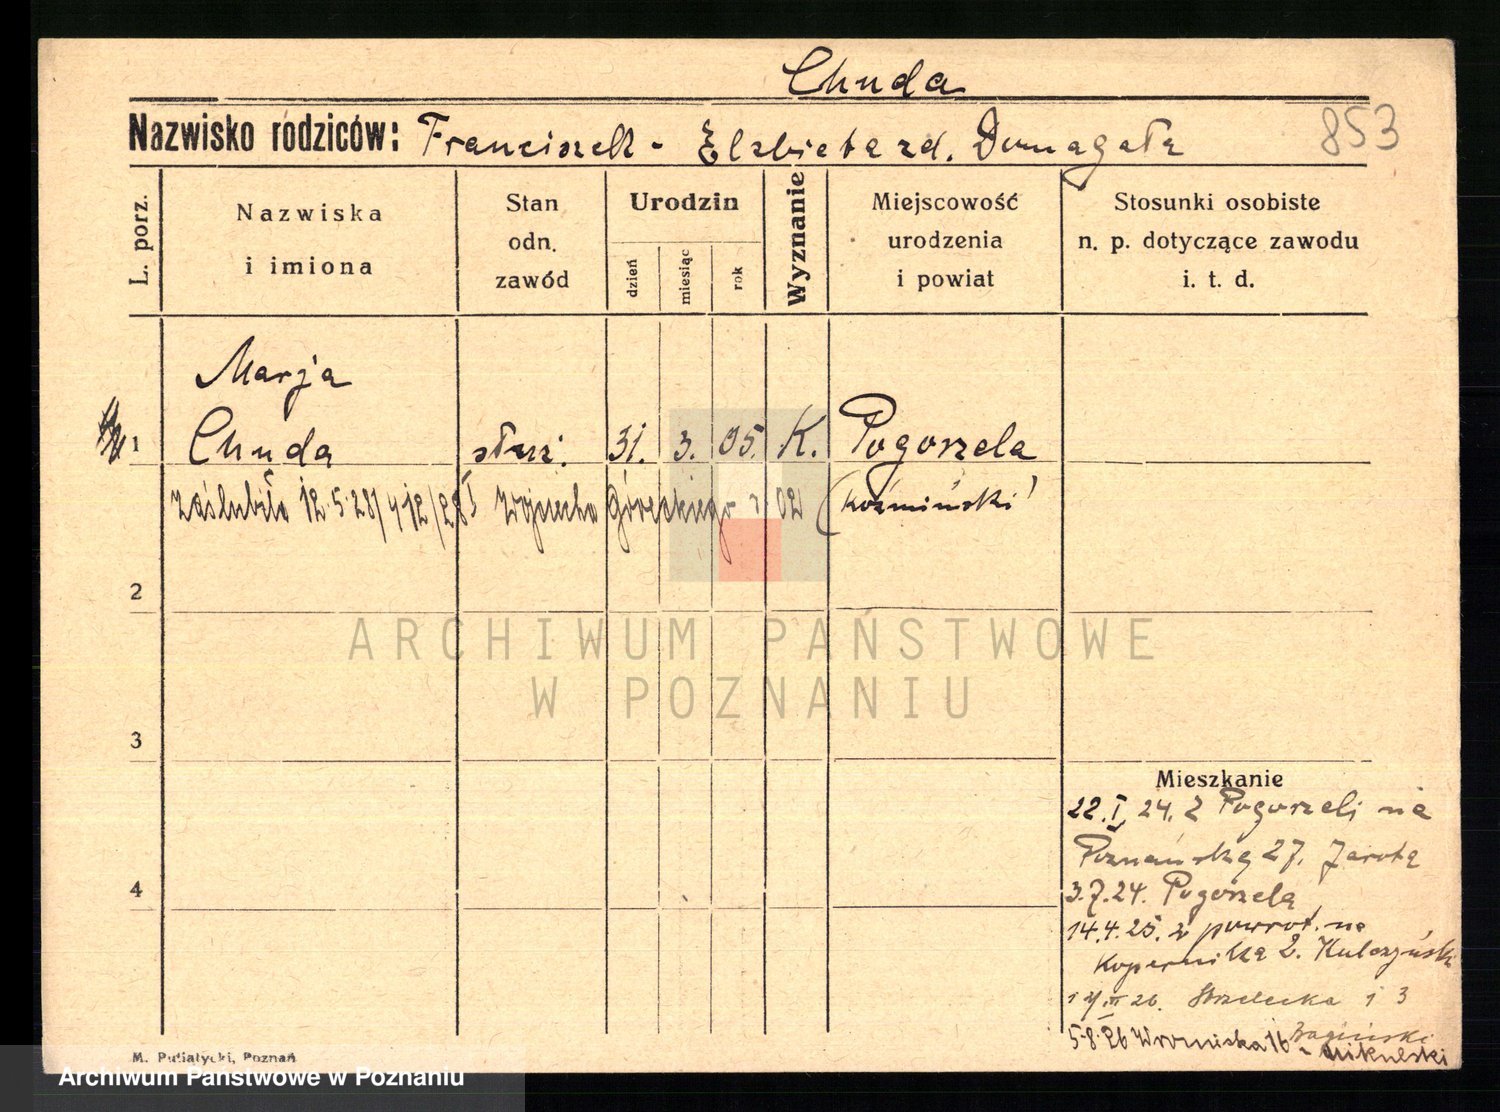 Chuda
Nazwisko rodziców: Franciszek - Elżbieta zd. Domagała 853
L. porz.
Nazwiska
i imiona
Stan
odn.
zawód
Urodzin
dzień
miesiąc
rok
Wyznanie
Miejscowość
urodzenia
i powiat
Stosunki osobiste
n. p. dotyczące zawodu
i. t. d.
Marja
1 Chuda służ. 31. 3. 05. K. Pogorzela
zaślubiła 12.5.28 Wojciecha Góreckiego 02 (Koźmiński)
2
ARCHIWUM PAŃSTWOWE
W POZNANIU
3
Mieszkanie
22.I. 24. z Pogorzeli na
Poznańską 27.
4
3.7.24. Pogorzela
14.4.25. z powrot. na
Kopernika 2. Kulczyński
26. Strzelecka 13
5-8-26 Wroniecka 16 - Mikulski
M. Putiatycki, Poznań
Archiwum Państwowe w Poznaniu